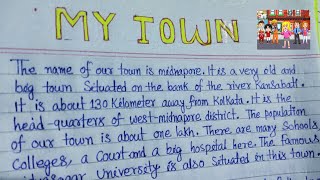 MY TOWN
The name of our town is midnapore. It is a very old and
big town Situated on the bank of the river Kansabati.
It is about 130 Kilometer away from Kolkata. It is the
head-quarters of west-midnapore district. The population
of our town is about one lakh. There are many Schools,
Colleges, a Court and a big hospital here. The famous
University is also situated in this town.